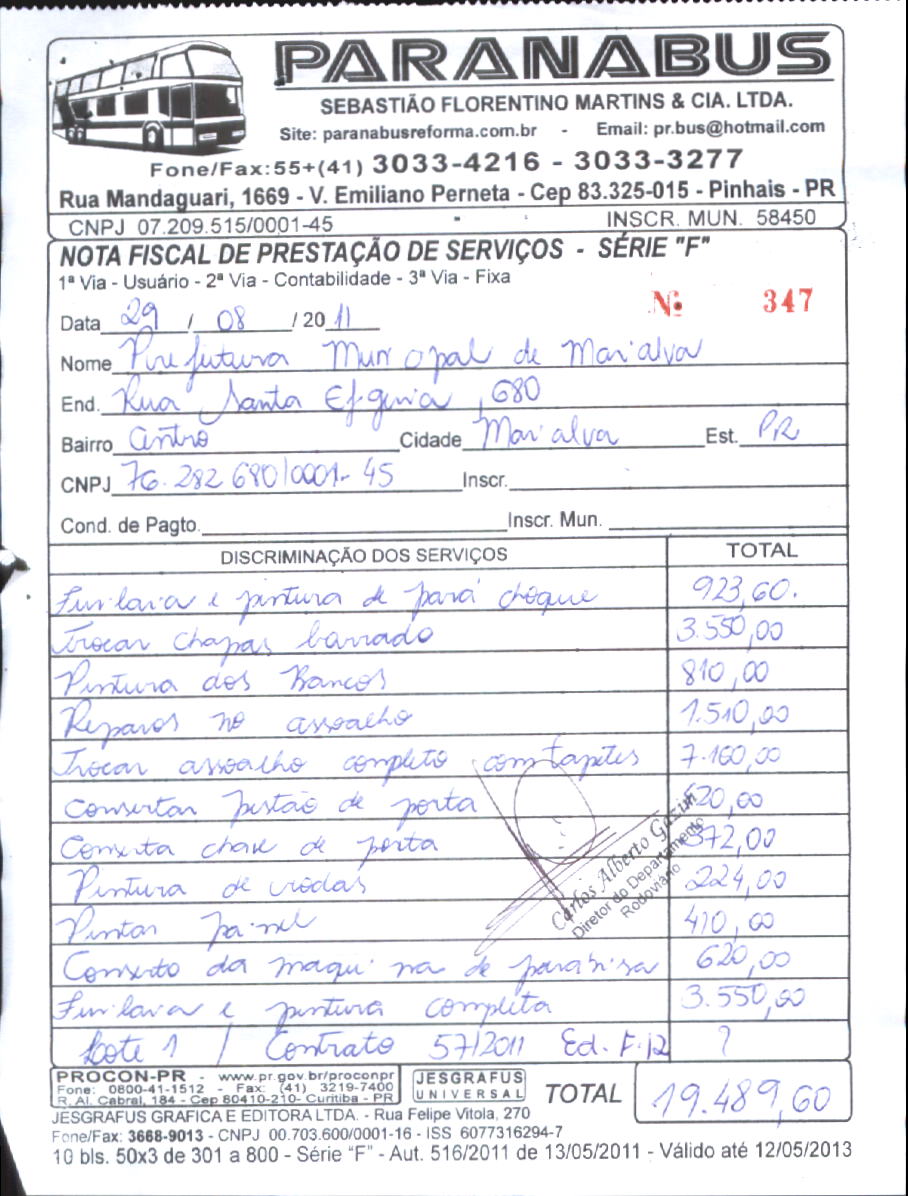 PARANABUS
SEBASTIÃO FLORENTINO MARTINS & CIA. LTDA.
Site: paranabusreforma.com.br - Email: pr.bus@hotmail.com
Fone/Fax:55+(41) 3033-4216 - 3033-3277
Rua Mandaguari, 1669 - V. Emiliano Perneta - Cep 83.325-015 - Pinhais - PR
CNPJ 07.209.515/0001-45 INSCR. MUN. 58450
NOTA FISCAL DE PRESTAÇÃO DE SERVIÇOS - SÉRIE "F"
1ª Via - Usuário - 2ª Via - Contabilidade - 3ª Via - Fixa
Nº 347
Data 29 / 08 / 20 11
Nome Prefeitura Municipal de Marialva
End. Rua Santa Efigenia, 680
Bairro Centro Cidade Marialva Est. PR
CNPJ 76.282 680/0001-45 Inscr.
Cond. de Pagto. Inscr. Mun.
DISCRIMINAÇÃO DOS SERVIÇOS TOTAL
Funilaria e pintura de pará choque 923,60.
Trocar chapas barrado 3.550,00
Pintura dos Bancos 810,00
Reparos no assoalho 1.510,00
Trocar assoalho completo com tapetes 7.160,00
Consertar pistão de porta 520,00
Conserta chave de porta 372,00
Pintura de rodas 224,00
Pintar painel 410,00
Conserto da maquina de parabrisa 620,00
Funilaria e pintura completa 3.550,00
Lote 1 / Contrato 57/2011 Ed. F.12 ?
Carlos Alberto
Diretor do Departamento
Rodoviário
PROCON-PR - www.pr.gov.br/proconpr
Fone: 0800-41-1512 - Fax: (41) 3219-7400
R. Al. Cabral, 184 - Cep 80410-210- Curitiba - PR
JESGRAFUS
UNIVERSAL
TOTAL 19.489,60
JESGRAFUS GRAFICA E EDITORA LTDA. - Rua Felipe Vitola, 270
Fone/Fax: 3668-9013 - CNPJ 00.703.600/0001-16 - ISS 6077316294-7
10 bls. 50x3 de 301 a 800 - Série "F" - Aut. 516/2011 de 13/05/2011 - Válido até 12/05/2013